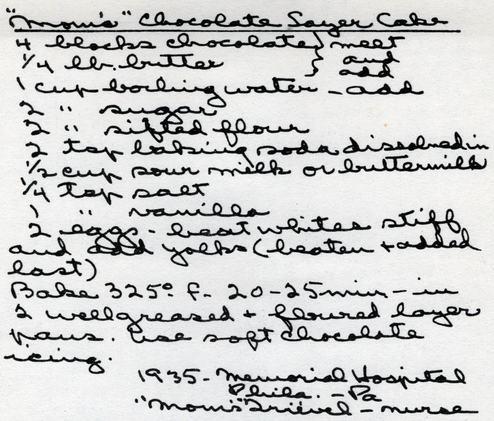 "Mom's" Chocolate Layer Cake
4 blocks chocolate } melt
1/4 lb. butter } and
add
1 cup boiling water - add
2 " sugar
2 " sifted flour
2 tsp baking soda dissolved in
1/2 cup sour milk or buttermilk
1/4 tsp salt
1 " vanilla
2 eggs - beat whites stiff
and add yolks (beaten + added
last)
Bake 325° F. 20-25 min - in
2 well greased + floured layer
pans. Use soft chocolate
icing.
1935 - Memorial Hospital
Phila. - Pa
"Mom's" - nurse